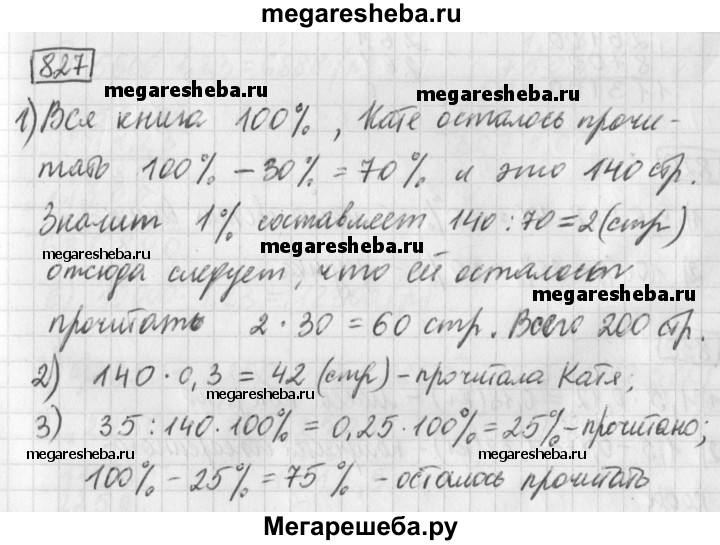 megaresheba.ru
827
megaresheba.ru megaresheba.ru
1) Вся книга 100%, Кате осталось прочи-
тать 100% - 30% = 70% и это 140 стр.
Значит 1% составляет 140 : 70 = 2 (стр)
megaresheba.ru megaresheba.ru
отсюда следует, что ей осталось
megaresheba.ru
прочитать 2 · 30 = 60 стр. Всего 200 стр.
2) 140 · 0,3 = 42 (стр) - прочитала Катя;
megaresheba.ru
3) 35 : 140 · 100% = 0,25 · 100% = 25% - прочитано;
megaresheba.ru megaresheba.ru megaresheba.ru
100% - 25% = 75 % - осталось прочитать
Мегарешеба.ру